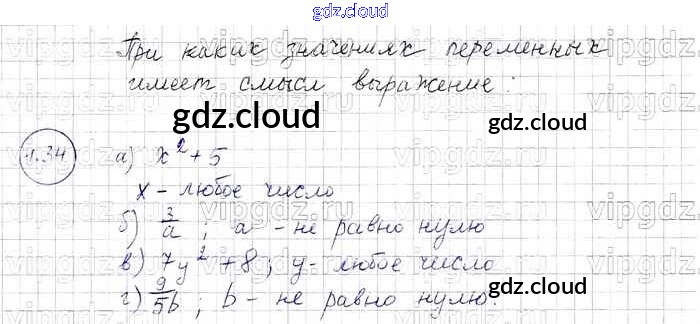 gdz.cloud
При каких значениях переменных
имеет смысл выражение:
gdz.cloud gdz.cloud
1.34 а) x² + 5
x - любое число
б) 3/a ; a - не равно нулю
в) 7y² + 8 ; y - любое число
г) 9/5b ; b - не равно нулю.
gdz.cloud gdz.cloud